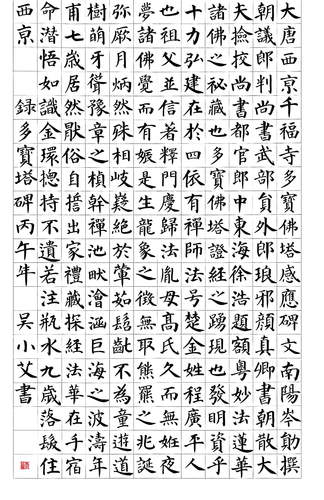 大唐西京千福寺多寶佛塔感應碑文南陽岑勛撰
朝議郎判尚書武部員外郎琅邪顏真卿書朝散大
夫撿挍尚書都官郎中東海徐浩題額粵妙法蓮華
諸佛之秘藏也多寶佛塔證經之踴現也發明資乎
十力弘建在於四依有禪師法号楚金姓程廣平人
也祖父並信著釋門慶歸法胤母高氏久而無姙夜
夢諸佛覺而有娠是生龍象之徵無取熊羆之兆誕
弥厥月炳然殊相岐嶷絕於葷茹髫齔不為童遊道
樹萌牙聳豫章之楨幹禪池畎澮涵巨海之波濤年
甫七歲居然猒俗自誓出家禮藏探經法華在手宿
命潛悟如識金環揔持不遺若注瓶水九歲落髮住
西京 録多寶塔碑丙午年 吴小艾書